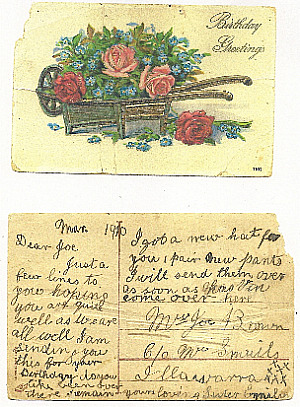 Birthday
Greetings
Mar 1910
Dear Joe.
Just a
few lines to
you hoping
you are quite
well as we are
all well I am
sending you
this for
Birthday do you
like been over
there
I got a new hat for
you 1 pair new pants
I will send them over
as soon as
come over. here
Mrs Joe Brown
C/o Mrs
Illawarra
remain your loving Sister
xxx